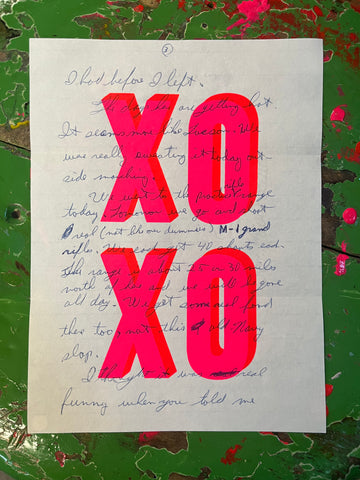 2
I had before I left.
The days here are getting hot.
It seems more like Tucson. We
was really sweating it today out-
side marching.
We went to the practice rifle range
today. Tomorrow we go and shoot
real (not like on dummies) M-1 grand
rifle. We each get 40 shots each.
The range is about 25 or 30 miles
north of here and we will be gone
all day. We get some real food
then too, not this old Navy
slop.
I thought it was real
funny when you told me
XO
XO